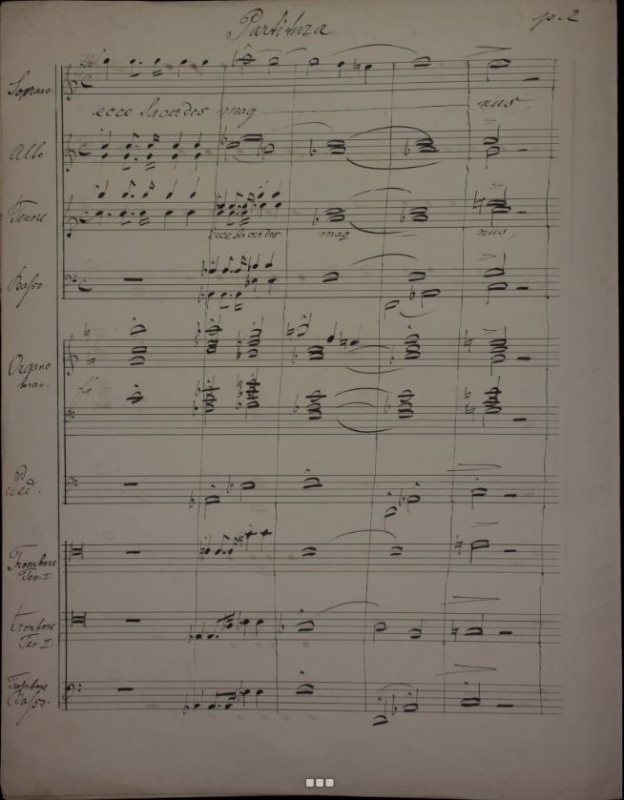 Partitura
p. 2
Soprano
ecce sacerdos mag nus,
Alto
Tenore
ecce sacerdos mag nus,
Basso
Organo
man.
Ped.
Trombone
Ten. I.
Trombone
Ten. II.
Trombone
Basso.